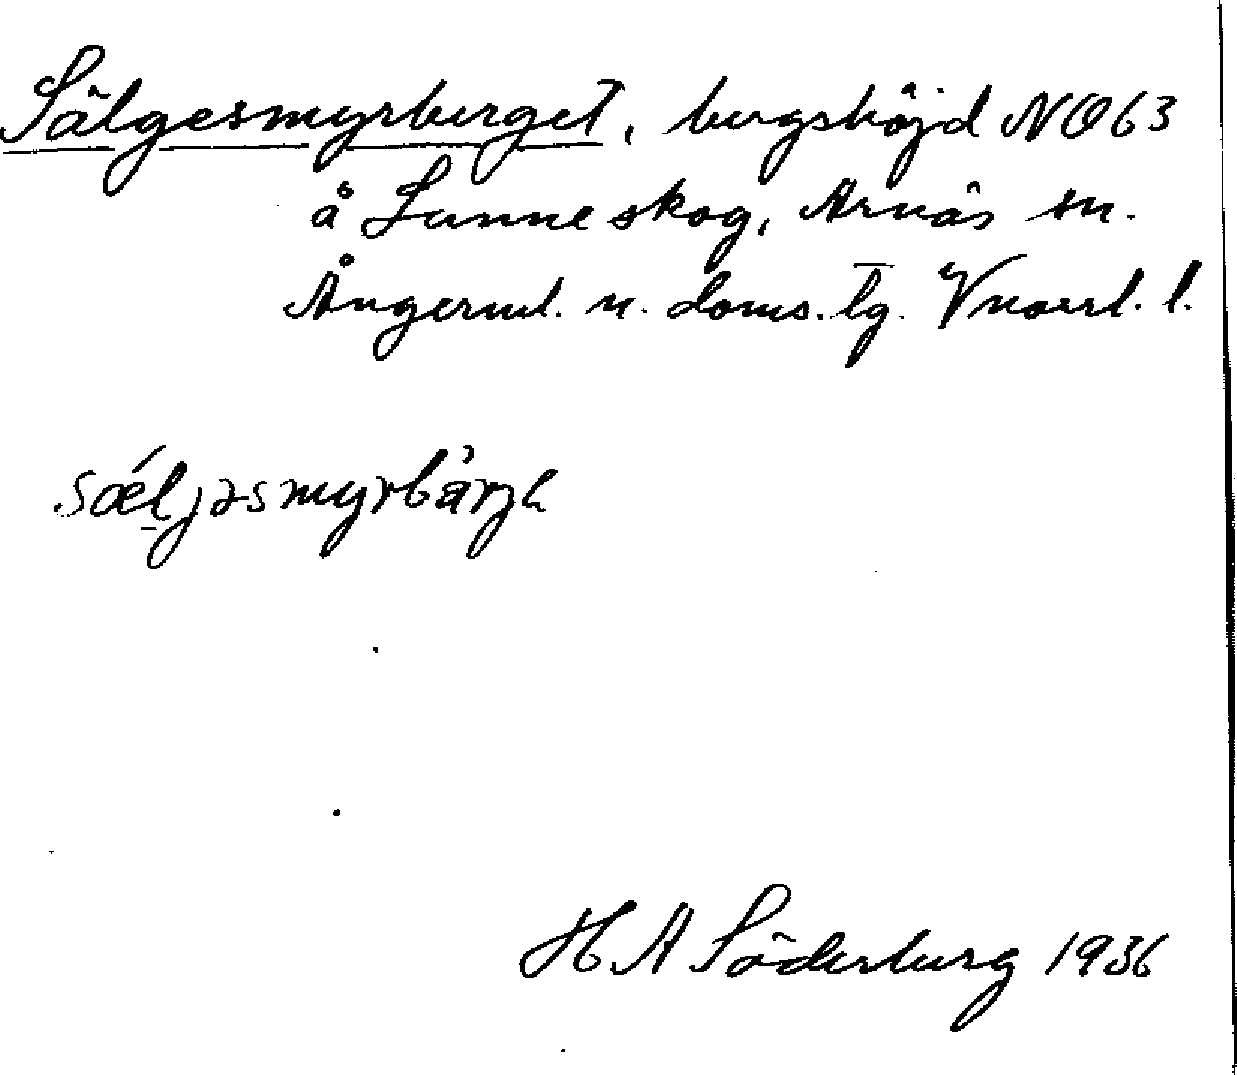 Sälgesmyrberget, bergshöjd NO63
å Sunne skog, Arnäs sn.
Ångerml. n. doms. lg. Vnorrl. l.
sǽljəsmyrbàrjə
H A Söderberg 1936